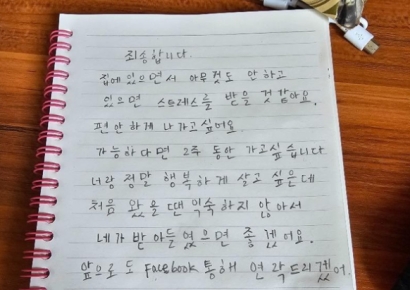 죄송합니다.
집에 있으면서 아무것도 안 하고
있으면 스트레스를 받을 것 같아요.
편안하게 나가고 싶어요.
가능하다면 2주 동안 가고싶습니다
너랑 정말 행복하게 살고 싶은데
처음 왔을 땐 익숙하지 않아서
네가 받아들였으면 좋겠어요.
앞으로도 Facebook 통해 연락드리겠어.